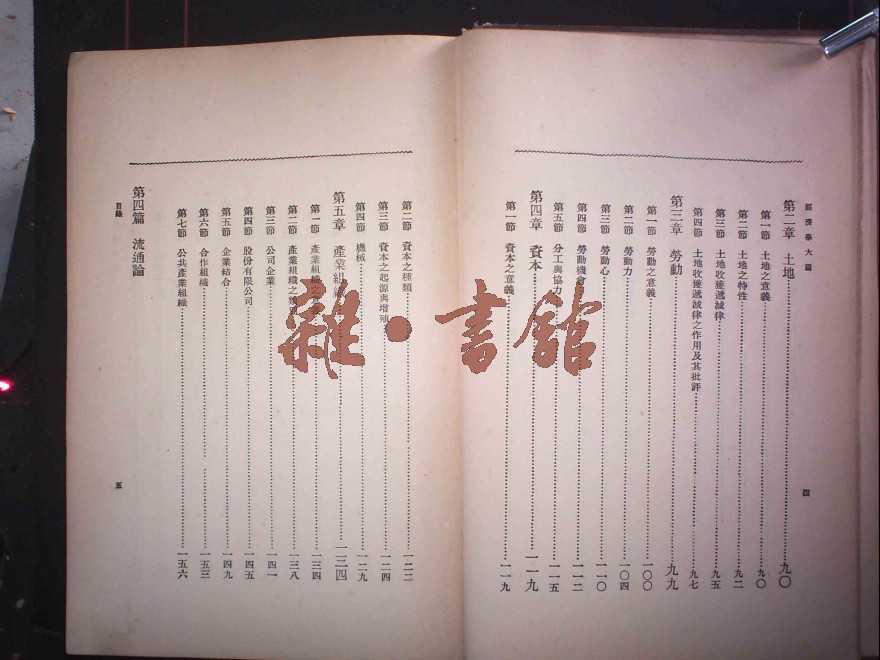 經濟學大綱
第二章 土地 九〇
第一節 土地之意義 九〇
第二節 土地之特性 九二
第三節 土地收穫遞減律 九五
第四節 土地收穫遞減律之作用及其批評 九七
第三章 勞動 九九
第一節 勞動之意義 一〇〇
第二節 勞動力 一〇四
第三節 勞動心 一一〇
第四節 勞動機會 一一二
第五節 分工與協力 一一五
第四章 資本 一一九
第一節 資本之意義 一一九
四
第二節 資本之種類 一二二
第三節 資本之起源與增殖 一二四
第四節 機械 一二九
第五章 產業組織 一三四
第一節 產業組織之 一三四
第二節 產業組織之 一三八
第三節 公司企業 一四一
第四節 股份有限公司 一四五
第五節 企業結合 一四九
第六節 合作組織 一五三
第七節 公共產業組織 一五六
第四篇 流通論
目錄
五
雜·書館